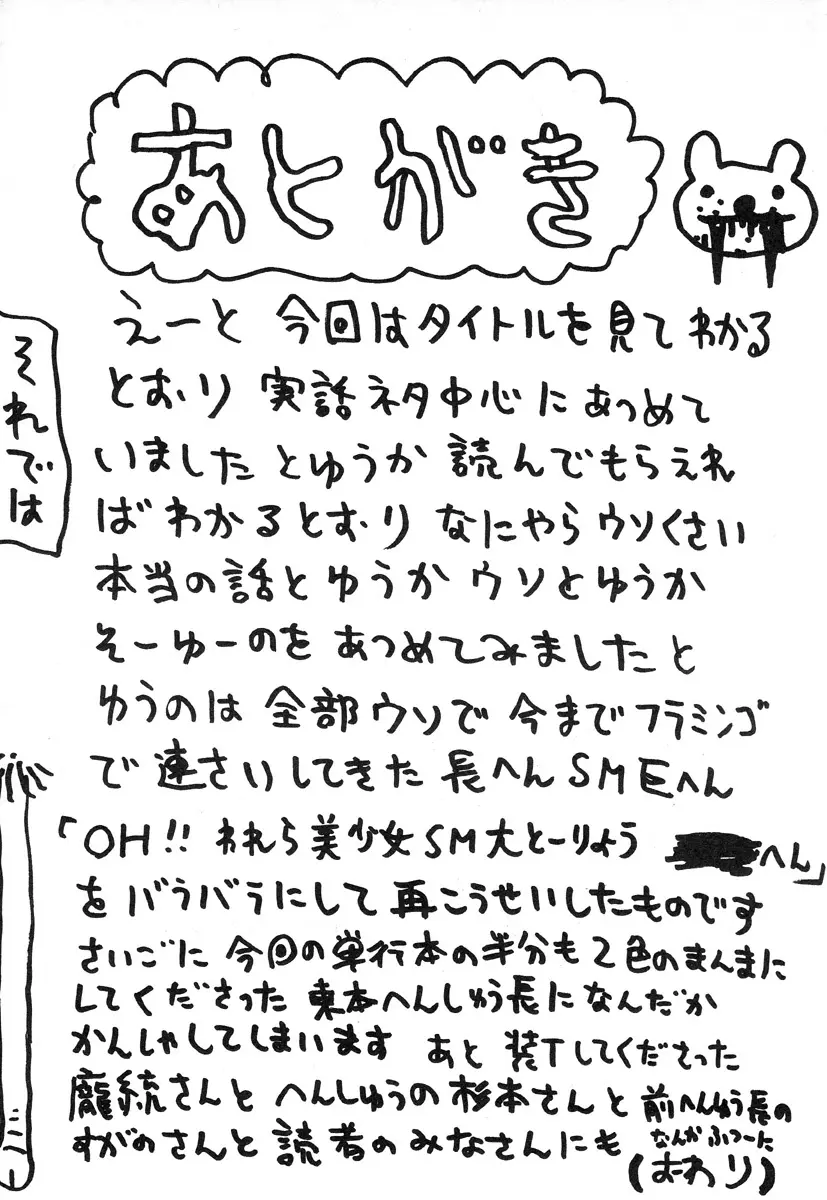 あとがき
えーと 今回はタイトルを見てわかる
とおり 実話ネタ中心にあつめて
いました とゆうか 読んでもらえれ
ばわかるとおり なにやらウソくさい
本当の話とゆうか ウソとゆうか
そーゆーのを あつめてみましたと
ゆうのは 全部ウソで 今までフラミンゴ
で 連さいしてきた 長へんSM巨へん
「OH!! われら美少女SM大とーりょう へん」
を バラバラにして 再こうせいしたものです
さいごに 今回の単行本の半分も2色のまんまに
してくださった 東本へんしゅう長に なんだか
かんしゃしてしまいます あと 装丁してくださった
龐統さんと へんしゅうの杉本さんと 前へんしゅう長の
すがのさんと 読者のみなさんにも なんかふつーに
(おわり)
それでは